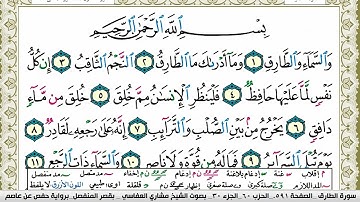 بِسْمِ ٱللَّهِ ٱلرَّحْمَـٰنِ ٱلرَّحِيمِ
وَٱلسَّمَآءِ وَٱلطَّارِقِ ١ وَمَآ أَدْرَىٰكَ مَا ٱلطَّارِقُ ٢ ٱلنَّجْمُ ٱلثَّاقِبُ ٣ إِن كُلُّ
نَفْسٍ لَّمَّا عَلَيْهَا حَافِظٌ ٤ فَلْيَنظُرِ ٱلْإِنسَـٰنُ مِمَّ خُلِقَ ٥ خُلِقَ مِن مَّآءٍ
دَافِقٍ ٦ يَخْرُجُ مِنۢ بَيْنِ ٱلصُّلْبِ وَٱلتَّرَآئِبِ ٧ إِنَّهُۥ عَلَىٰ رَجْعِهِۦ لَقَادِرٌ ٨
يَوْمَ تُبْلَى ٱلسَّرَآئِرُ ٩ فَمَا لَهُۥ مِن قُوَّةٍ وَلَا نَاصِرٍ ١٠ وَٱلسَّمَآءِ ذَاتِ ٱلرَّجْعِ ١١
سورة الطارق. الصفحة ٥٩١. الحزب ٦٠. الجزء ٣٠. بصوت الشيخ مشاري العفاسي. بقصر المنفصل. برواية حفص عن عاصم